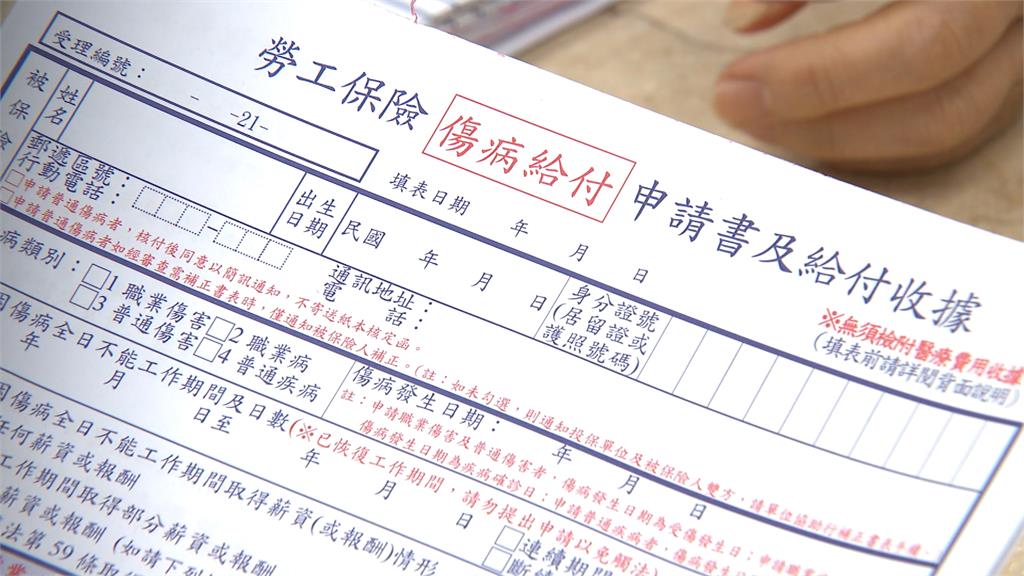 受理編號：
勞工保險 傷病給付 申請書及給付收據
- -21-
填表日期 年 月 日
※無須檢附醫療費用收據
(填表前請詳閱背面說明)
被保險
姓名
出生日期
民國 年 月 日
身分證號
(居留證或
護照號碼)
郵遞區號：
通訊地址：
行動電話：
電 話：
申請普通傷病者，核付後同意以簡訊通知，不寄送紙本核定函。(註：如未勾選，則通知投保單位及被保險人雙方，請單位協助行補正書表手續。
申請普通傷病者如經審查需補正書表時，僅通知被保險人補正。
病類別：
1 職業傷害 2 職業病
3 普通傷害 4 普通疾病
傷病發生日期： 年 月 日
註：申請職業傷害及普通傷害者，傷病發生日期為受傷發生日；申請職業
傷病發生日期為疾病確診日；申請普通疾病者，傷病發生
因傷病全日不能工作期間及日數(※已恢復工作期間，請勿提出申請以免觸法)
年 月 日至 年 月 日
連續期間
斷續
因傷病全日不能工作期間取得薪資(或報酬)情形
任何薪資或報酬
工作期間取得部分薪資或報酬
薪資或報酬 (如請下列
法第59條取得